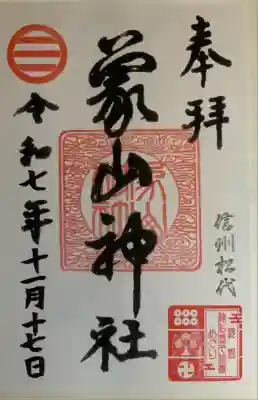 奉拝
信州松代
象山神社
令和七年十一月十七日